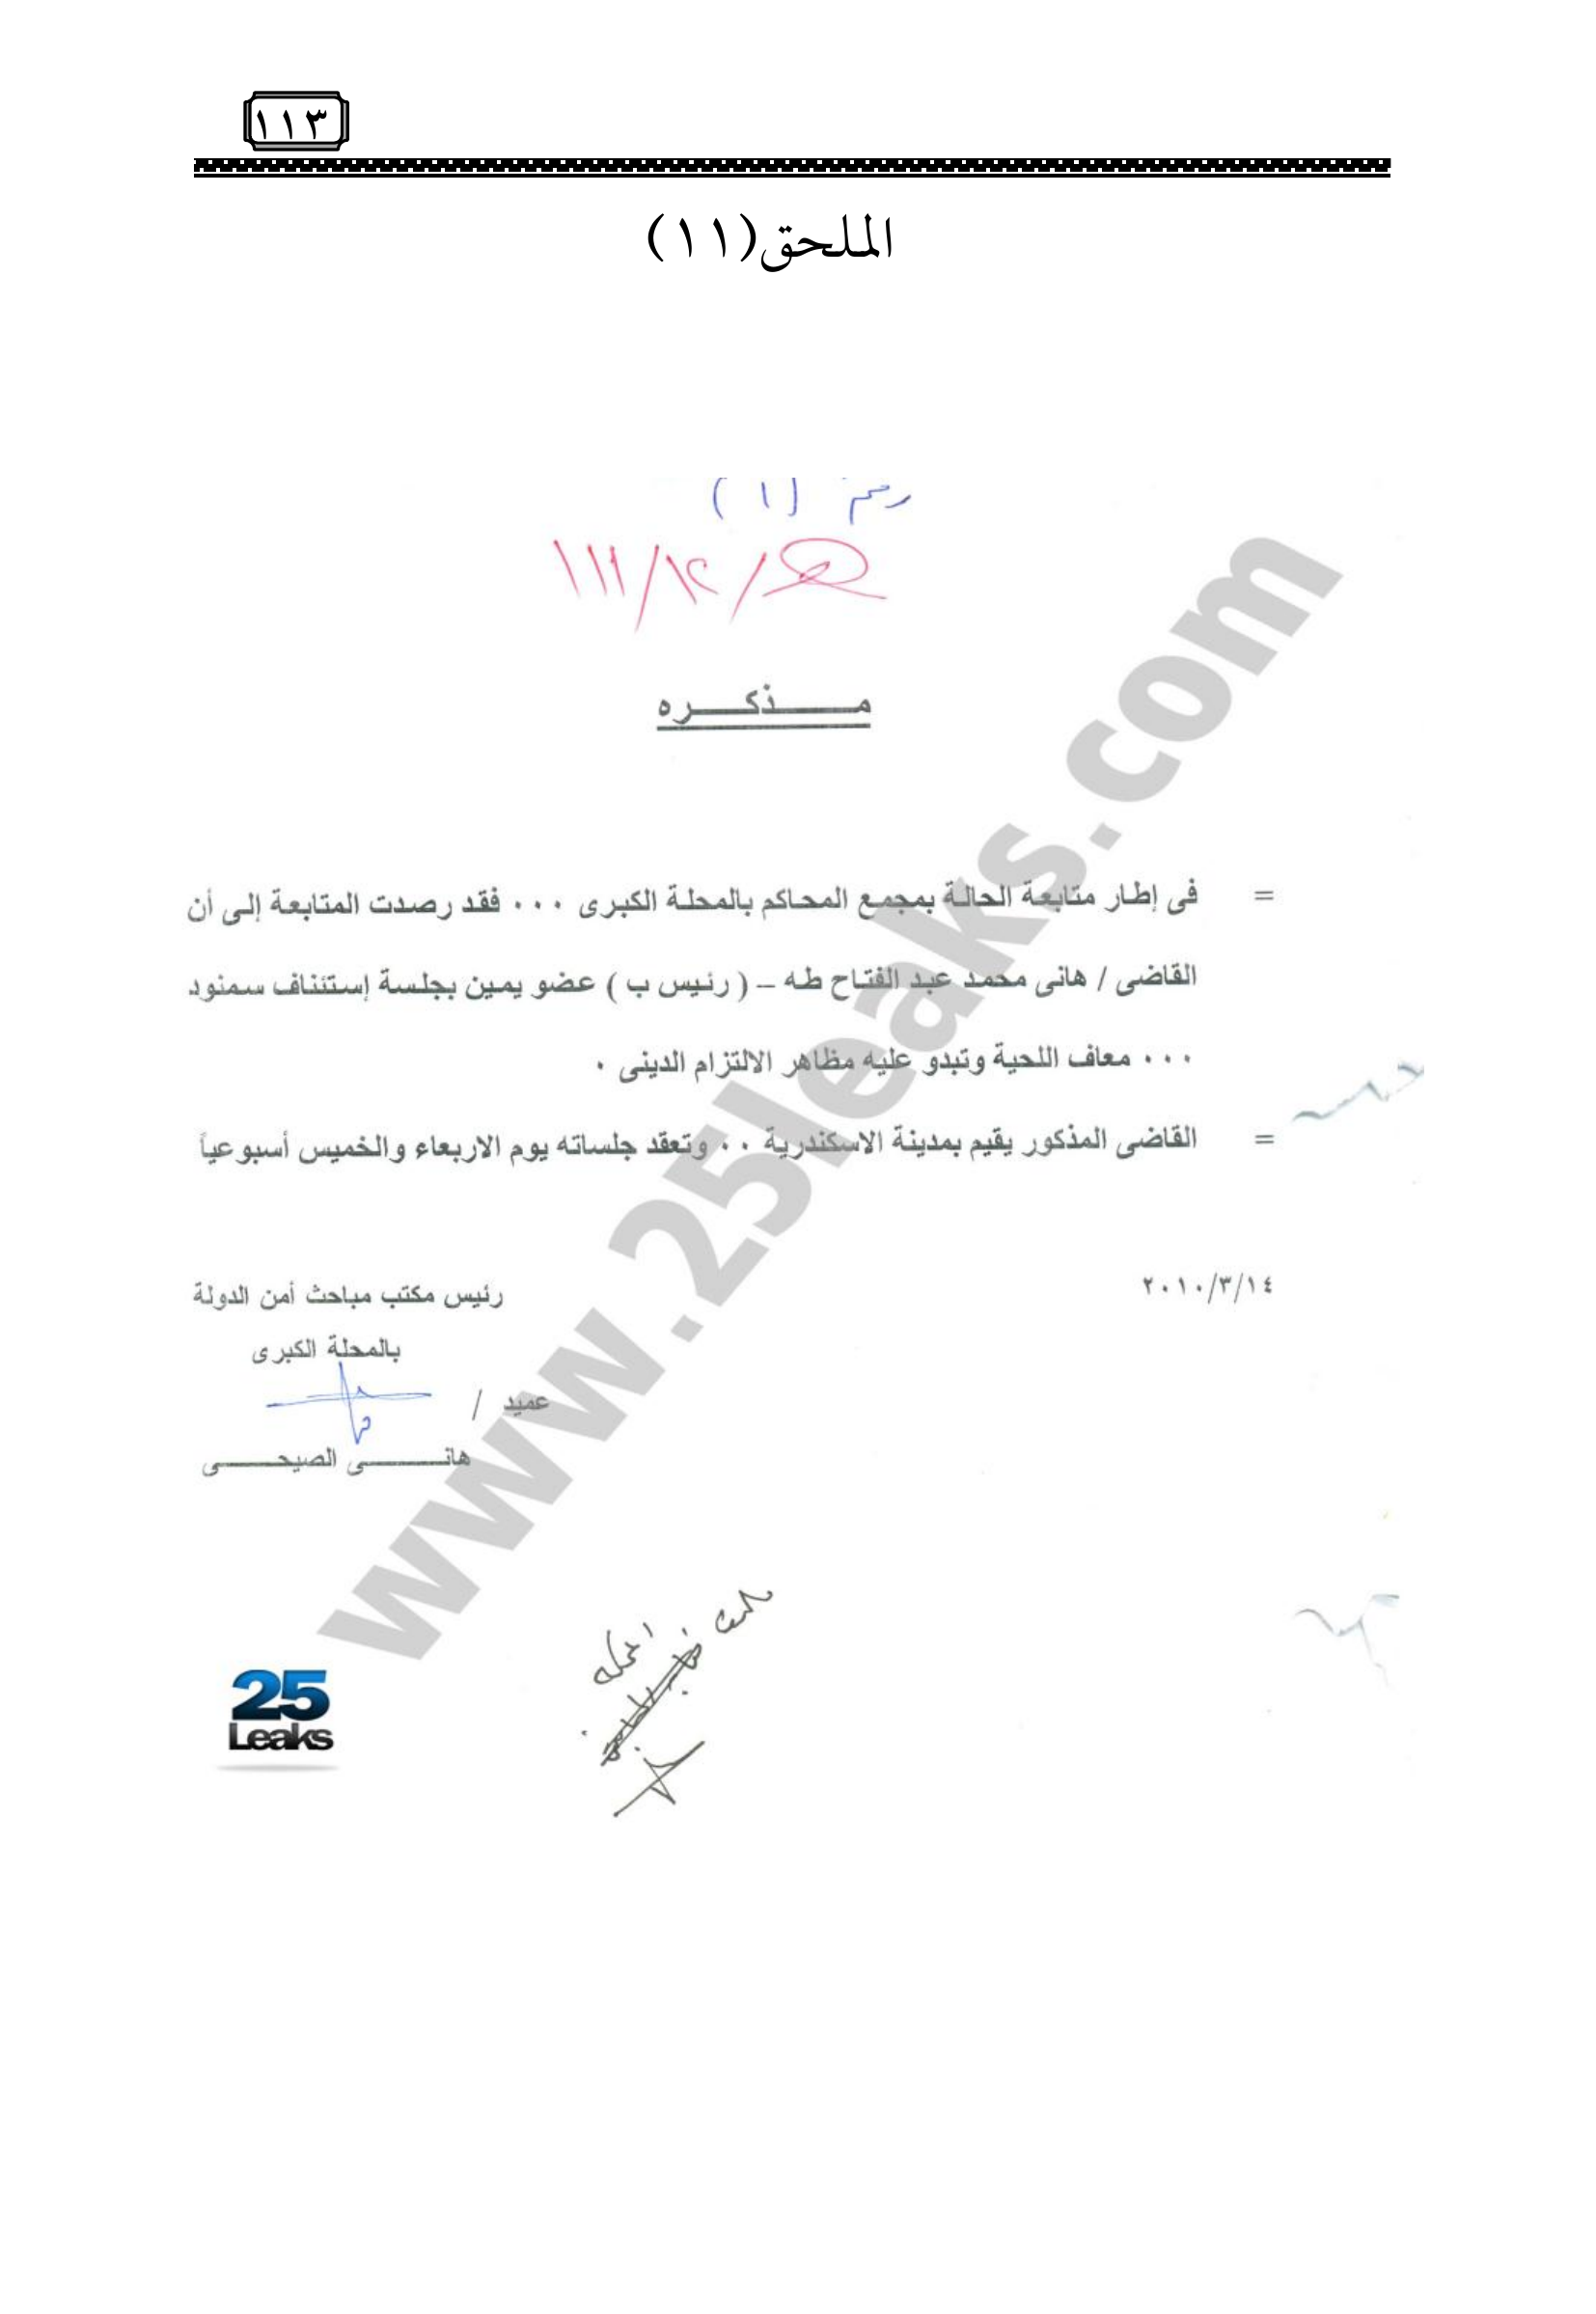 ١١٣
الملحق(١١)
رقم (١)
مـــــذكـــــره
= فى إطار متابعة الحالة بمجمع المحاكم بالمحلة الكبرى ٠٠٠ فقد رصدت المتابعة إلى أن
القاضى / هانى محمد عبد الفتاح طه – ( رئيس ب ) عضو يمين بجلسة إستئناف سمنود
٠٠٠ معاف اللحية وتبدو عليه مظاهر الالتزام الدينى ٠
= القاضى المذكور يقيم بمدينة الاسكندرية ٠٠ وتعقد جلساته يوم الاربعاء والخميس أسبوعياً
٢٠١٠/٣/١٤
رئيس مكتب مباحث أمن الدولة
بالمحلة الكبرى
عميد /
هانـــــى الصيحـــــى
www.25leaks.com
25
Leaks